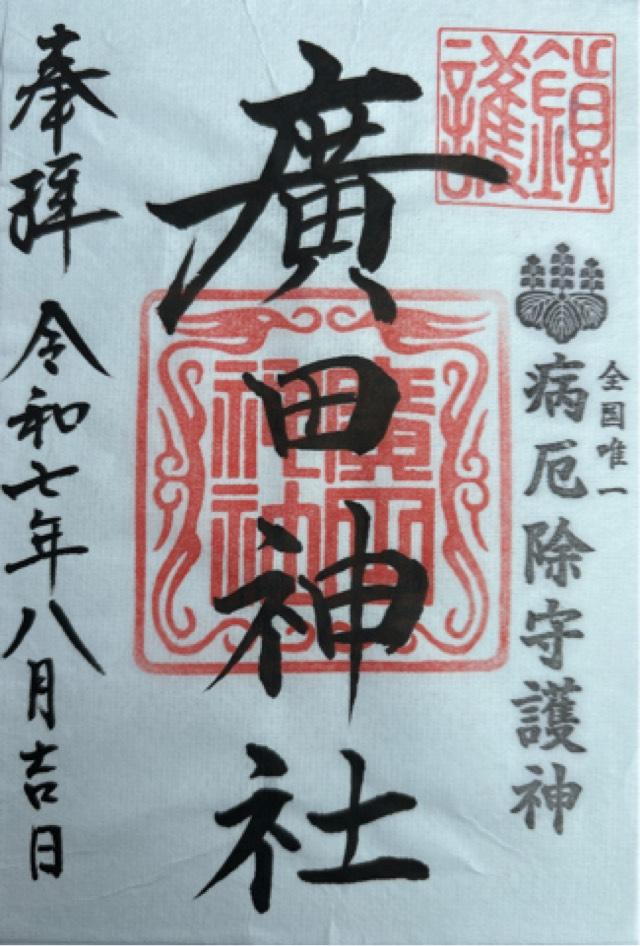 鎮護
全国唯一
病厄除守護神
廣田神社
廣田神社
奉拝
令和七年八月吉日